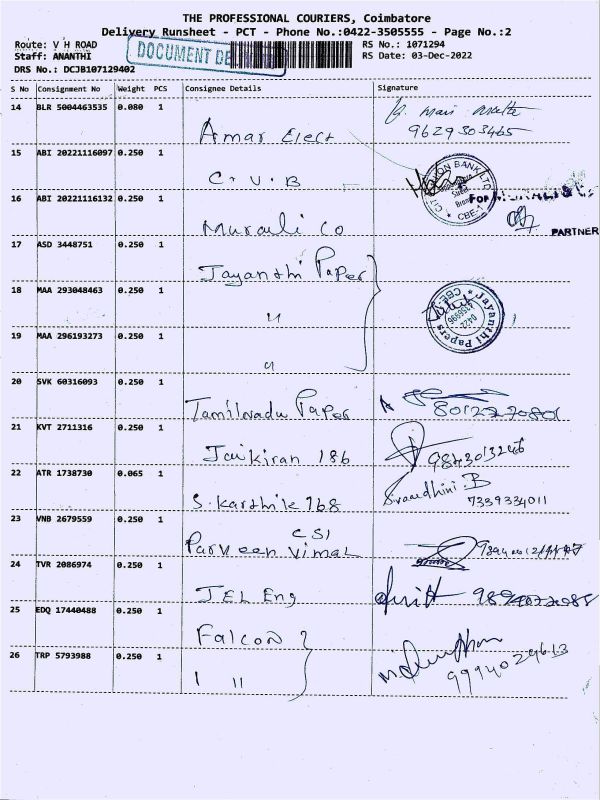 THE PROFESSIONAL COURIERS, Coimbatore
Delivery Runsheet - PCT - Phone No.:0422-3505555 - Page No.:2
Route: V H ROAD
RS No.: 1071294
Staff: ANANTHI
DOCUMENT DE
RS Date: 03-Dec-2022
DRS No.: DCJB107129402
S No Consignment No Weight PCS Consignee Details Signature
14 BLR 5004463535 0.080 1
Amar Elect
9629303465
15 ABI 20221116097 0.250 1
C.V.B
CBE-1
16 ABI 20221116132 0.250 1
FOR MURALI & Co.
Murali Co
PARTNER
17 ASD 3448751 0.250 1
Jayanthi Paper
18 MAA 293048463 0.250 1
"
Jayanthi Papers
CBE-
19 MAA 296193273 0.250 1
"
20 SVK 60316093 0.250 1
Tamilnadu Paper
21 KVT 2711316 0.250 1
Jai Kiran 186
9843013246
22 ATR 1738730 0.065 1
S. Karthik 768
7339334011
23 VNB 2679559 0.250 1
CSI
Parveen Vimal
24 TVR 2086974 0.250 1
JEL Eng
25 EDQ 17440488 0.250 1
Falcon
26 TRP 5793988 0.250 1
9994029613